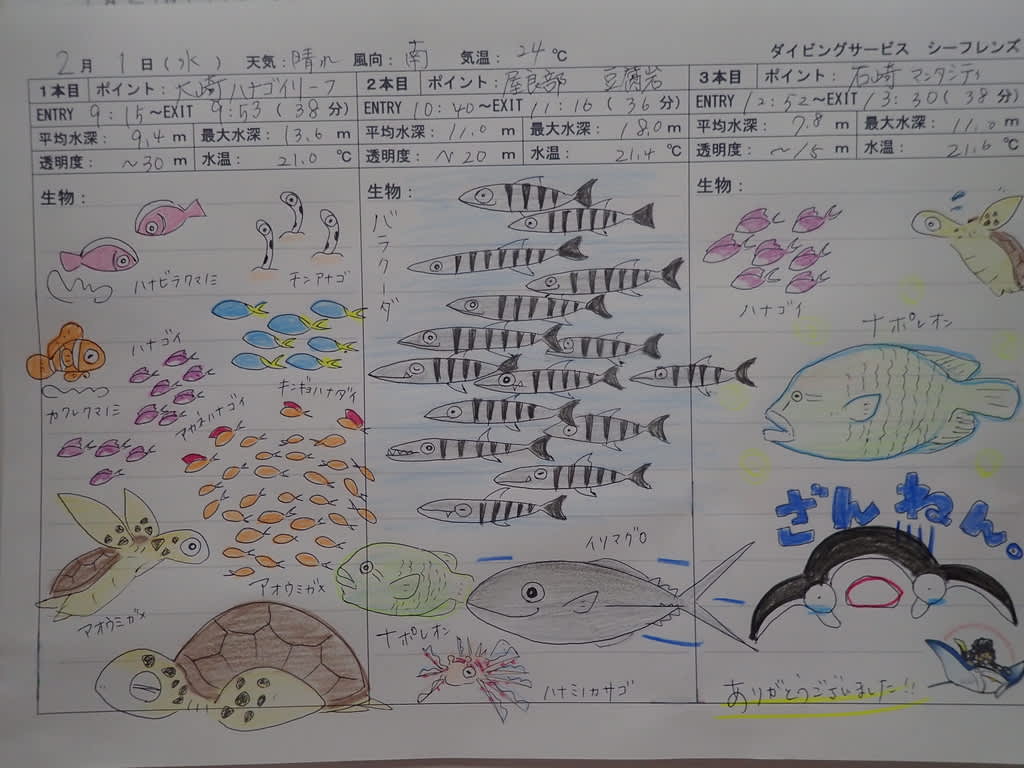 2月 1日(水) 天気:晴れ 風向:南 気温:24℃ ダイビングサービス シーフレンズ
1本目 ポイント:大崎ハナゴイリーフ
ENTRY 9:15~EXIT 9:53(38分)
平均水深: 9.4 m 最大水深: 13.6 m
透明度: ~30 m 水温: 21.0 ℃
生物:
ハナビラクマノミ
チンアナゴ
ハナゴイ
カクレクマノミ
キンギョハナダイ
アカネハナゴイ
アオウミガメ
アオウミガメ
2本目 ポイント:屋良部 豆腐岩
ENTRY 10:40~EXIT 11:16(36分)
平均水深: 11.0 m 最大水深: 18.0 m
透明度: ~20 m 水温: 21.4 ℃
生物:
バラクーダ
イソマグロ
ナポレオン
ハナミノカサゴ
3本目 ポイント:石崎 マンタシティ
ENTRY 12:52~EXIT 13:30(38分)
平均水深: 7.8 m 最大水深: 11.0 m
透明度: ~15 m 水温: 21.6 ℃
生物:
ハナゴイ
ナポレオン
ざんねん。
ありがとうございました!!